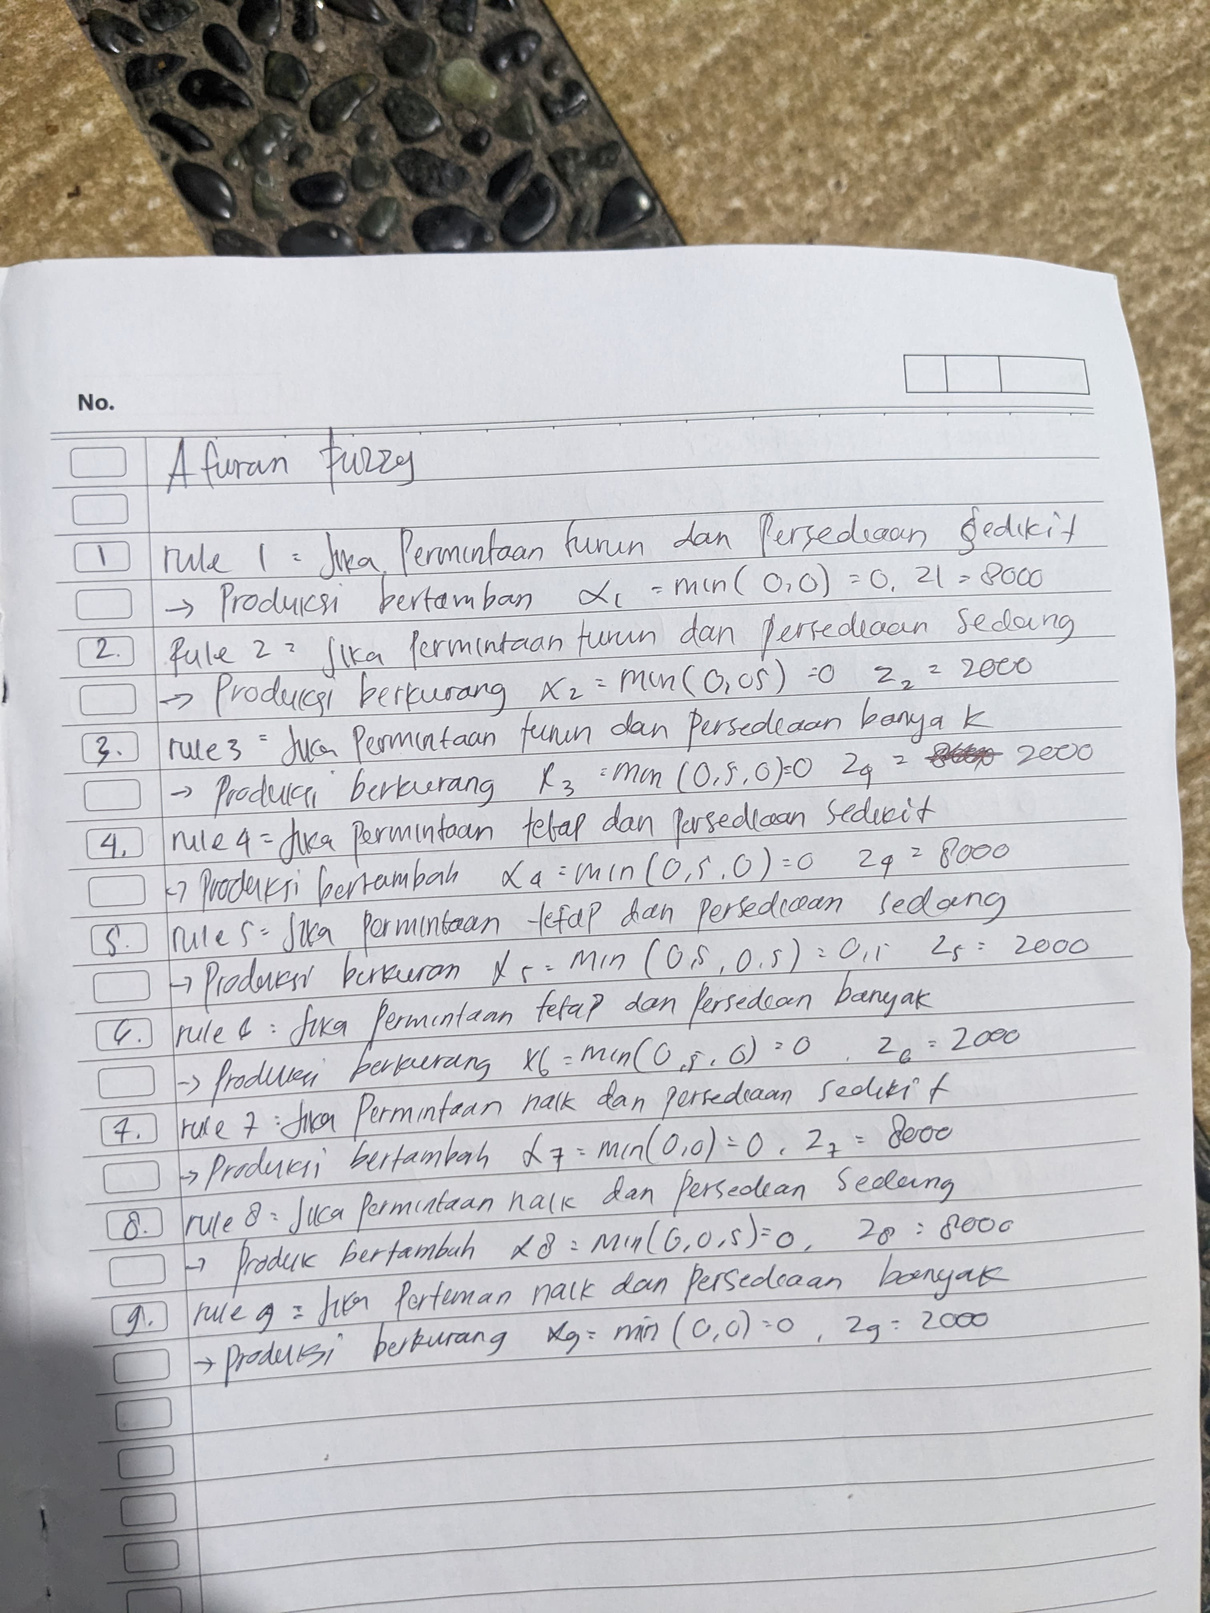 No.
Afuran fuzzy
1 rule 1 = Jika Permintaan turun dan Persediaan Sedikit
→ Produksi bertamban α1 = min(0,0) = 0, Z1 = 8000
2. Rule 2 = Jika Permintaan turun dan persediaan Sedang
→ Produksi berkurang α2 = min(0,05) = 0 Z2 = 2000
3. rule 3 = Jika Permintaan turun dan Persediaan banyak
→ Produksi berkurang α3 = min (0,5,0)=0 Z4 = 2000
4. rule 4 = Jika permintaan tetap dan Persediaan Sedikit
→ Produksi bertambah α4 = min (0,5,0)=0 Z4 = 8000
5. rule 5 = Jika Permintaan tetap dan Persediaan sedang
→ Produksi berkuran α5 = min (0,5, 0,5) = 0,5 Z5 = 2000
6. rule 6 = Jika Permintaan tetap dan Persedean banyak
→ Produksi berkurang α6 = min(0,5,0) = 0, Z6 = 2000
7. rule 7 = Jika Permintaan naik dan Persediaan Sedikit
→ Produksi bertambah α7 = min(0,0) = 0, Z7 = 8000
8. rule 8 = Jika Permintaan naik dan Persediean Sedang
→ Produk bertambah α8 = min(0,0,5)=0, Z8 = 8000
9. rule 9 = Jika Perteman naik dan Persediaan banyak
→ Produksi berkurang α9 = min (0,0) = 0, Z9 = 2000